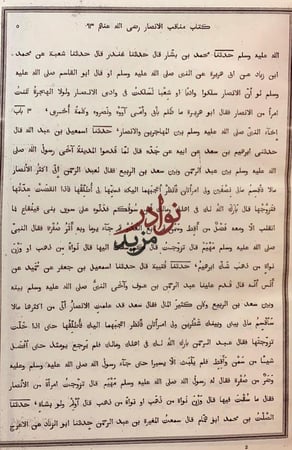 كتاب مناقب الانصار رضى الله عنهم ٦٣ ٥
الله عليه وسلم حدثنا محمد بن بشار قال حدثنا غندر قال حدثنا شعبة عن محمد
ابن زياد عن ابى هريرة عن النبى صلى الله عليه وسلم او قال ابو القاسم صلى الله عليه
وسلم لو أنّ الانصار سلكوا واديا او شعبا لسلكت فى وادى الانصار ولولا الهجرة لكنت
امرأ من الانصار فقال ابو هريرة ما ظلم بأبى وأمى آووه ونصروه وكلمة أخرى، ٣ باب
اخاء النبى صلى الله عليه وسلم بين المهاجرين والانصار، حدثنا اسمعيل بن عبد الله قال
حدثنى ابراهيم بن سعد عن ابيه عن جده قال لما قدموا المدينة آخى رسول الله صلى
الله عليه وسلم بين عبد الرحمن وسعد بن الربيع فقال لعبد الرحمن انى اكثر الأنصار
مالا فأقسم مالى نصفين ولى امرأتان فانظر أعجبهما اليك فسمها لى أطلقها فاذا انقضت عدتها
فتزوجها قال بارك الله لك فى اهلك ومالك اين سوقكم فدلوه على سوق بنى قينقاع فما
انقلب الا ومعه فضل من أقط وسمن ثم تابع الغدو ثم جاء يوما وبه أثر صفرة فقال النبى
صلى الله عليه وسلم مهيم قال تزوجت قال كم سقت اليها قال نواة من ذهب او وزن
نواة من ذهب شك ابراهيم، حدثنا قتيبة قال حدثنا اسمعيل بن جعفر عن حميد عن
أنس أنه قال قدم علينا عبد الرحمن بن عوف وآخى النبى صلى الله عليه وسلم بينه
وبين سعد بن الربيع وكان كثير المال فقال سعد قد علمت الانصار أنى من اكثرها مالا
سأقسم مالى بينى وبينك شطرين ولى امرأتان فانظر اعجبهما اليك فأطلقها حتى اذا حلت
تزوجتها فقال عبد الرحمن بارك الله لك فى اهلك ومالك فلم يرجع يومئذ حتى أفضل
شيئا من سمن وأقط فلم يلبث الا يسيرا حتى جاء رسول الله صلى الله عليه وسلم وعليه
وضر من صفرة فقال له رسول الله صلى الله عليه وسلم مهيم قال تزوجت امرأة من الانصار
فقال ما سقت فيها قال وزن نواة من ذهب او نواة من ذهب قال أولم ولو بشاة، حدثنا
الصلت بن محمد ابو همام قال سمعت المغيرة بن عبد الرحمن حدثنا ابو الزناد عن الاعرج
نوادر
مزيد